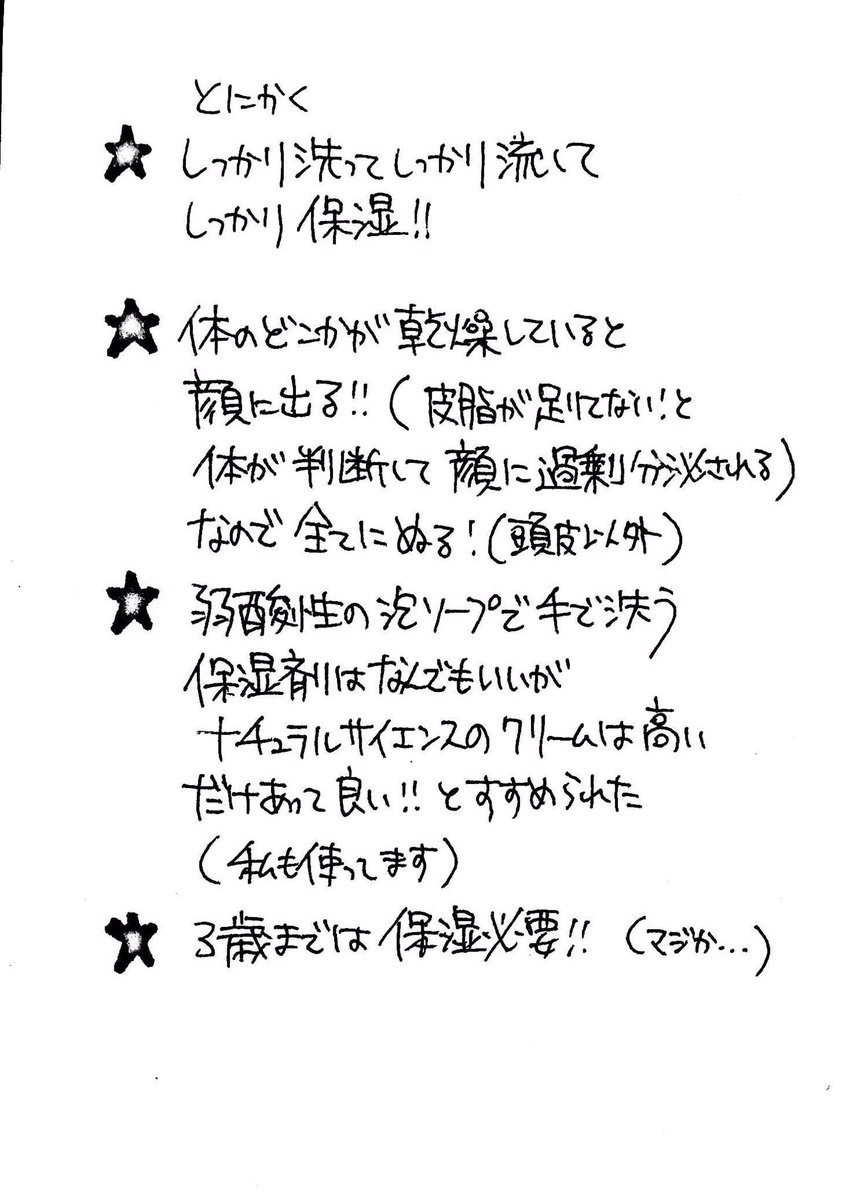 とにかく
★ しっかり洗ってしっかり流して
しっかり保湿!!
★ 体のどこかが乾燥していると
顔に出る!!(皮脂が足りてない!と
体が判断して顔に過剰分泌される)
なので全てにぬる!(頭皮以外)
★ 弱酸性の泡ソープで手で洗う
保湿剤はなんでもいいが
ナチュラルサイエンスのクリームは高い
だけあって良い!!とすすめられた
(私も使ってます)
★ 3歳までは保湿必要!!(マジか...)